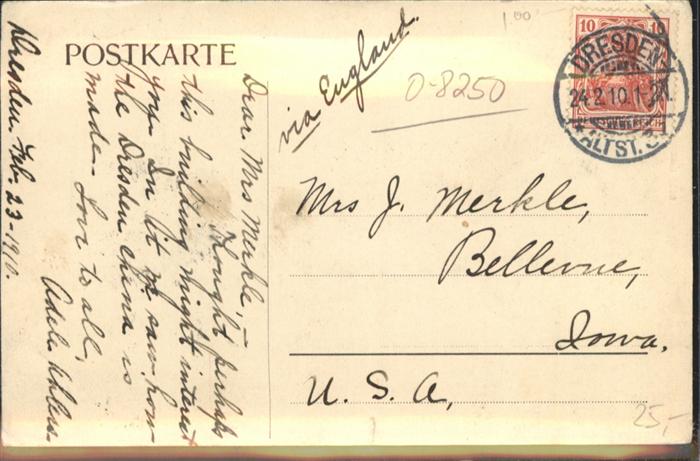 POSTKARTE
via England.
0-8250
1 00
10 10
DRESDEN
24.2.10.1-2N
* ALTST. 3
Mrs J. Merkle,
Bellevue,
Iowa.
U. S. A,
25,-
Dear Mrs Merkle, —
Thought perhaps
this building might interest
you. In it we saw how
the Dresden china is
made. Love to all,
Adele Ahlers
Dresden. Feb. 23-1910.